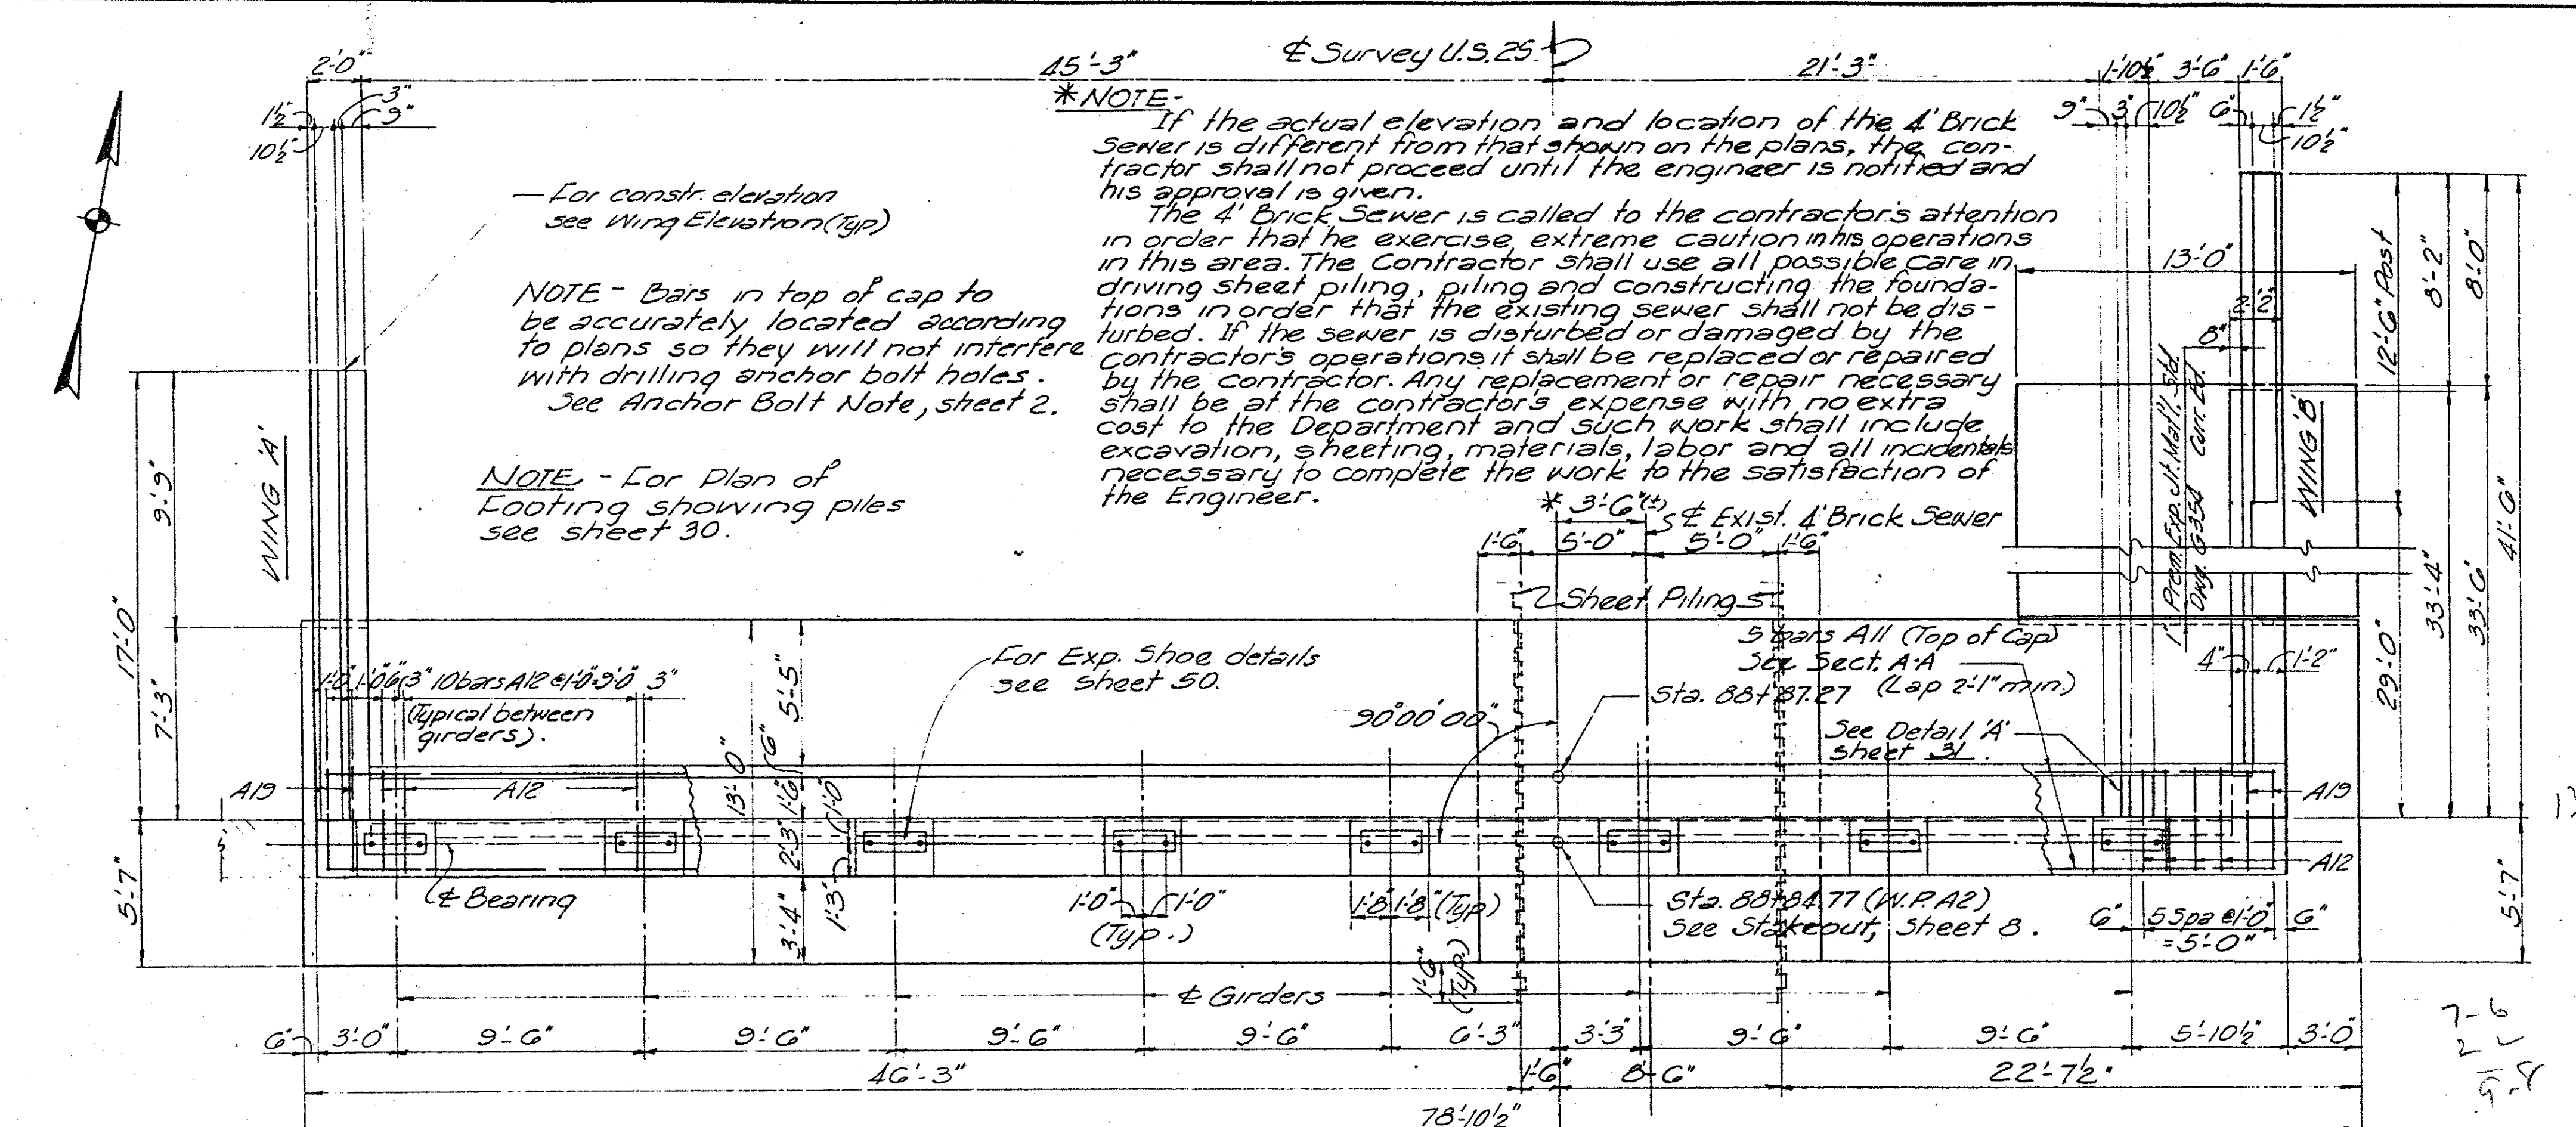 ℄ Survey U.S. 25
2'-0"
45'-3"
21'-3"
1'-10½"
3'-6"
1'-6"
1½"
10½"
3"
9"
9"
3"
10½"
6"
1½"
10½"
*NOTE-
If the actual elevation and location of the 4' Brick
Sewer is different from that shown on the plans, the con-
tractor shall not proceed until the engineer is notified and
his approval is given.
The 4' Brick Sewer is called to the contractor's attention
in order that he exercise extreme caution in his operations
in this area. The Contractor shall use all possible care in
driving sheet piling, piling and constructing the founda-
tions in order that the existing sewer shall not be dis-
turbed. If the sewer is disturbed or damaged by the
contractor's operations it shall be replaced or repaired
by the contractor. Any replacement or repair necessary
shall be at the contractor's expense with no extra
cost to the Department and such work shall include
excavation, sheeting, materials, labor and all incidentals
necessary to complete the work to the satisfaction of
the Engineer.
For constr. elevation
see Wing Elevation (Typ)
NOTE - Bars in top of cap to
be accurately located according
to plans so they will not interfere
with drilling anchor bolt holes.
See Anchor Bolt Note, sheet 2.
NOTE - For Plan of
Footing showing piles
see sheet 30.
WING 'A'
9'-9"
17'-0"
7'-3"
5'-7"
13'-0"
2'-2"
8"
1" Prem. Exp. Jt. Mat'l. Std.
Dwg. G354 Curr. Ed.
WING 'B'
12'-6" Post
8'-2"
8'-0"
41'-6"
33'-4"
33'-6"
29'-0"
5'-7"
* 3'-6"(±)
℄ Exist. 4' Brick Sewer
1'-6"
5'-0"
5'-0"
1'-6"
Sheet Piling
5 bars A11 (Top of Cap)
See Sect. A-A
(Lap 2'-1" min.)
4"
1'-2"
Sta. 88+87.27
90°00'00"
See Detail 'A'
sheet 31.
For Exp. Shoe details
see sheet 50.
1'-0"
1'-0"
6"
3"
10 bars A12 @ 1'-0=9'-0"
3"
(Typical between
girders).
5'-5"
6"
13'-0"
1'-6"
1'-0"
2'-3"
1'-3"
3'-4"
A19
A12
A19
A12
℄ Bearing
1'-0"
1'-0"
(Typ.)
1'-8"
1'-8"
(Typ)
1'-6"
(Typ.)
Sta. 88+84.77 (W.P. A2)
See Stakeout, Sheet 8.
6"
5 Spa @ 1'-0"
= 5'-0"
6"
℄ Girders
6"
3'-0"
9'-6"
9'-6"
9'-6"
9'-6"
6'-3"
3'-3"
9'-6"
9'-6"
5'-10½"
3'-0"
46'-3"
1'-6"
8'-6"
22'-7½"
78'-10½"
7-6